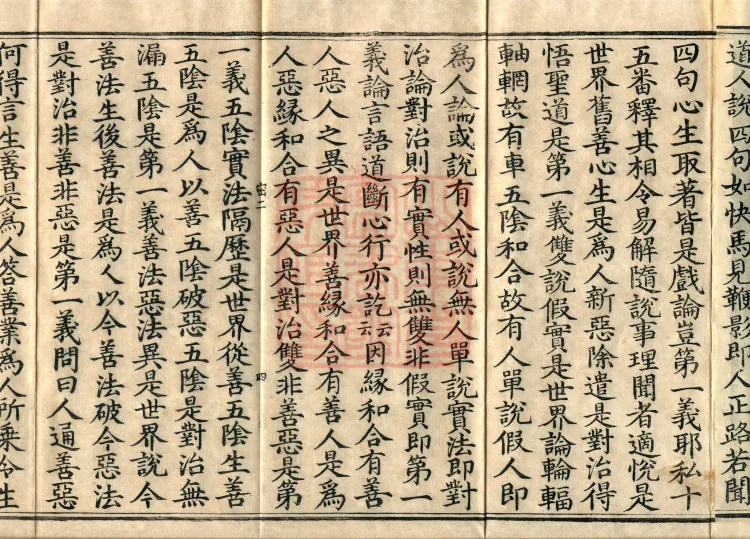 道人說四句如快馬見鞭影即入正路若聞
四句心生取著皆是戲論豈第一義耶私十
五番釋其相令易解隨說事理聞者適悅是
世界舊善心生是為人新惡除遣是對治得
悟聖道是第一義雙說假實是世界論輪輻
軸輞故有車五陰和合故有人單說假人即
為人論或說有人或說無人單說實法即對
治論對治則有實性則無雙非假實即第一
義論言語道斷心行亦訖云云因緣和合有善
人惡人之異是世界善緣和合有善人是為
人惡緣和合有惡人是對治雙非善惡是第
一義五陰實法隔歷是世界從善五陰生善
五陰是為人以善五陰破惡五陰是對治無
漏五陰是第一義善法惡法異是世界說今
善法生後善法是為人以今善法破今惡法
是對治非善非惡是第一義問曰人通善惡
何得言生善是為人答善業為人所乘今生